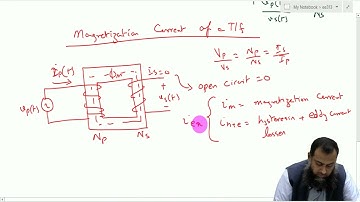 My Notebook > ee313
Vs(t) Ns
Magnetization Current of a T/f
Vp/Vs = Np/Ns = Is/Ip
ip(t)
is=0
open circuit = 0
vp(t)
+
vs(t)
-
Np Ns
iex { im = magnetization current
ih+e = hysteresis + eddy current
losses